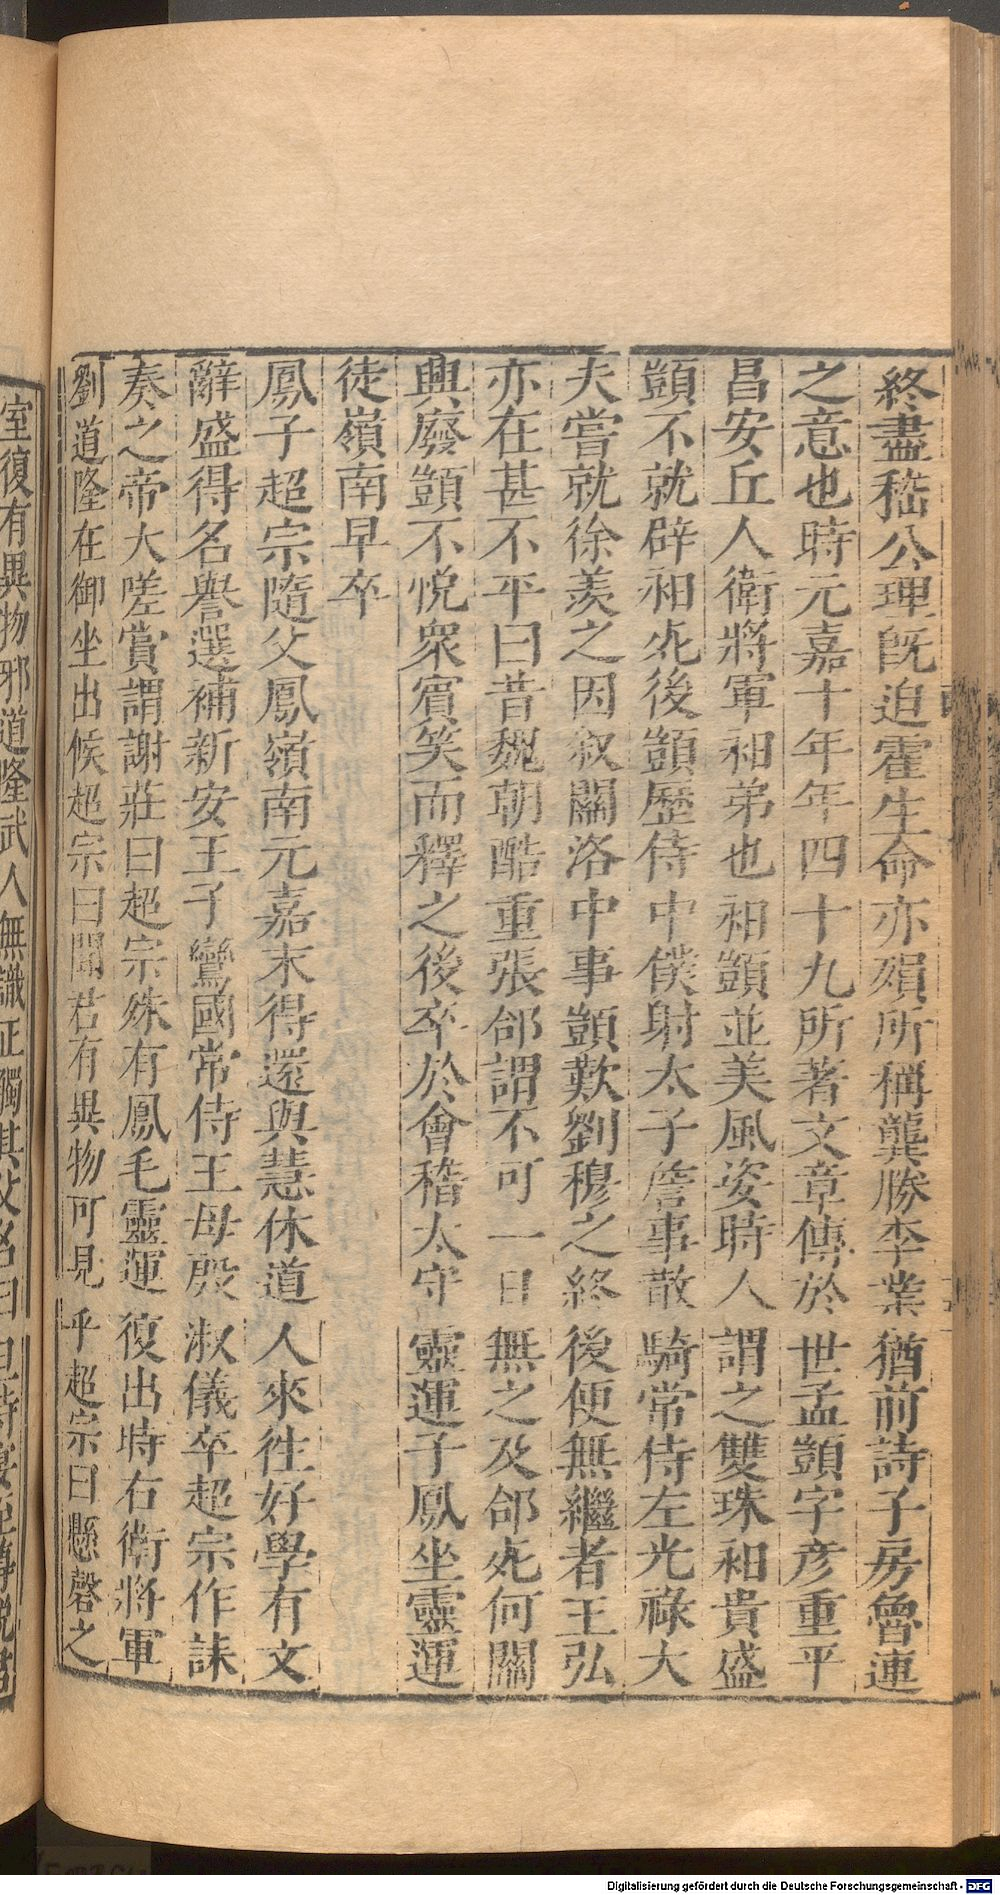 終盡嵇公理既迫霍生命亦殞所稱龔勝李業猶前詩子房魯連
之意也時元嘉十年年四十九所著文章傳於世孟顗字彥重平
昌安丘人衛將軍昶弟也昶顗並美風姿時人謂之雙珠昶貴盛
顗不就辟昶死後顗歷侍中僕射太子詹事散騎常侍左光祿大
夫嘗就徐羨之因叙關洛中事顗歎劉穆之終後便無繼者王弘
亦在甚不平曰昔魏朝酷重張郃謂不可一日無之及郃死何關
興廢顗不悅眾賓笑而釋之後卒於會稽太守靈運子鳳坐靈運
徒嶺南早卒
鳳子超宗隨父鳳嶺南元嘉末得還與慧休道人來往好學有文
辭盛得名譽選補新安王子鸞國常侍王母殷淑儀卒超宗作誄
奏之帝大嗟賞謂謝莊曰超宗殊有鳳毛靈運復出時右衛將軍
劉道隆在御坐出候超宗曰聞君有異物可見乎超宗曰懸磬之
室復有異物邪道隆武人無識正觸其父名曰旦侍宴至尊說君
Digitalisierung gefördert durch die Deutsche Forschungsgemeinschaft - DFG